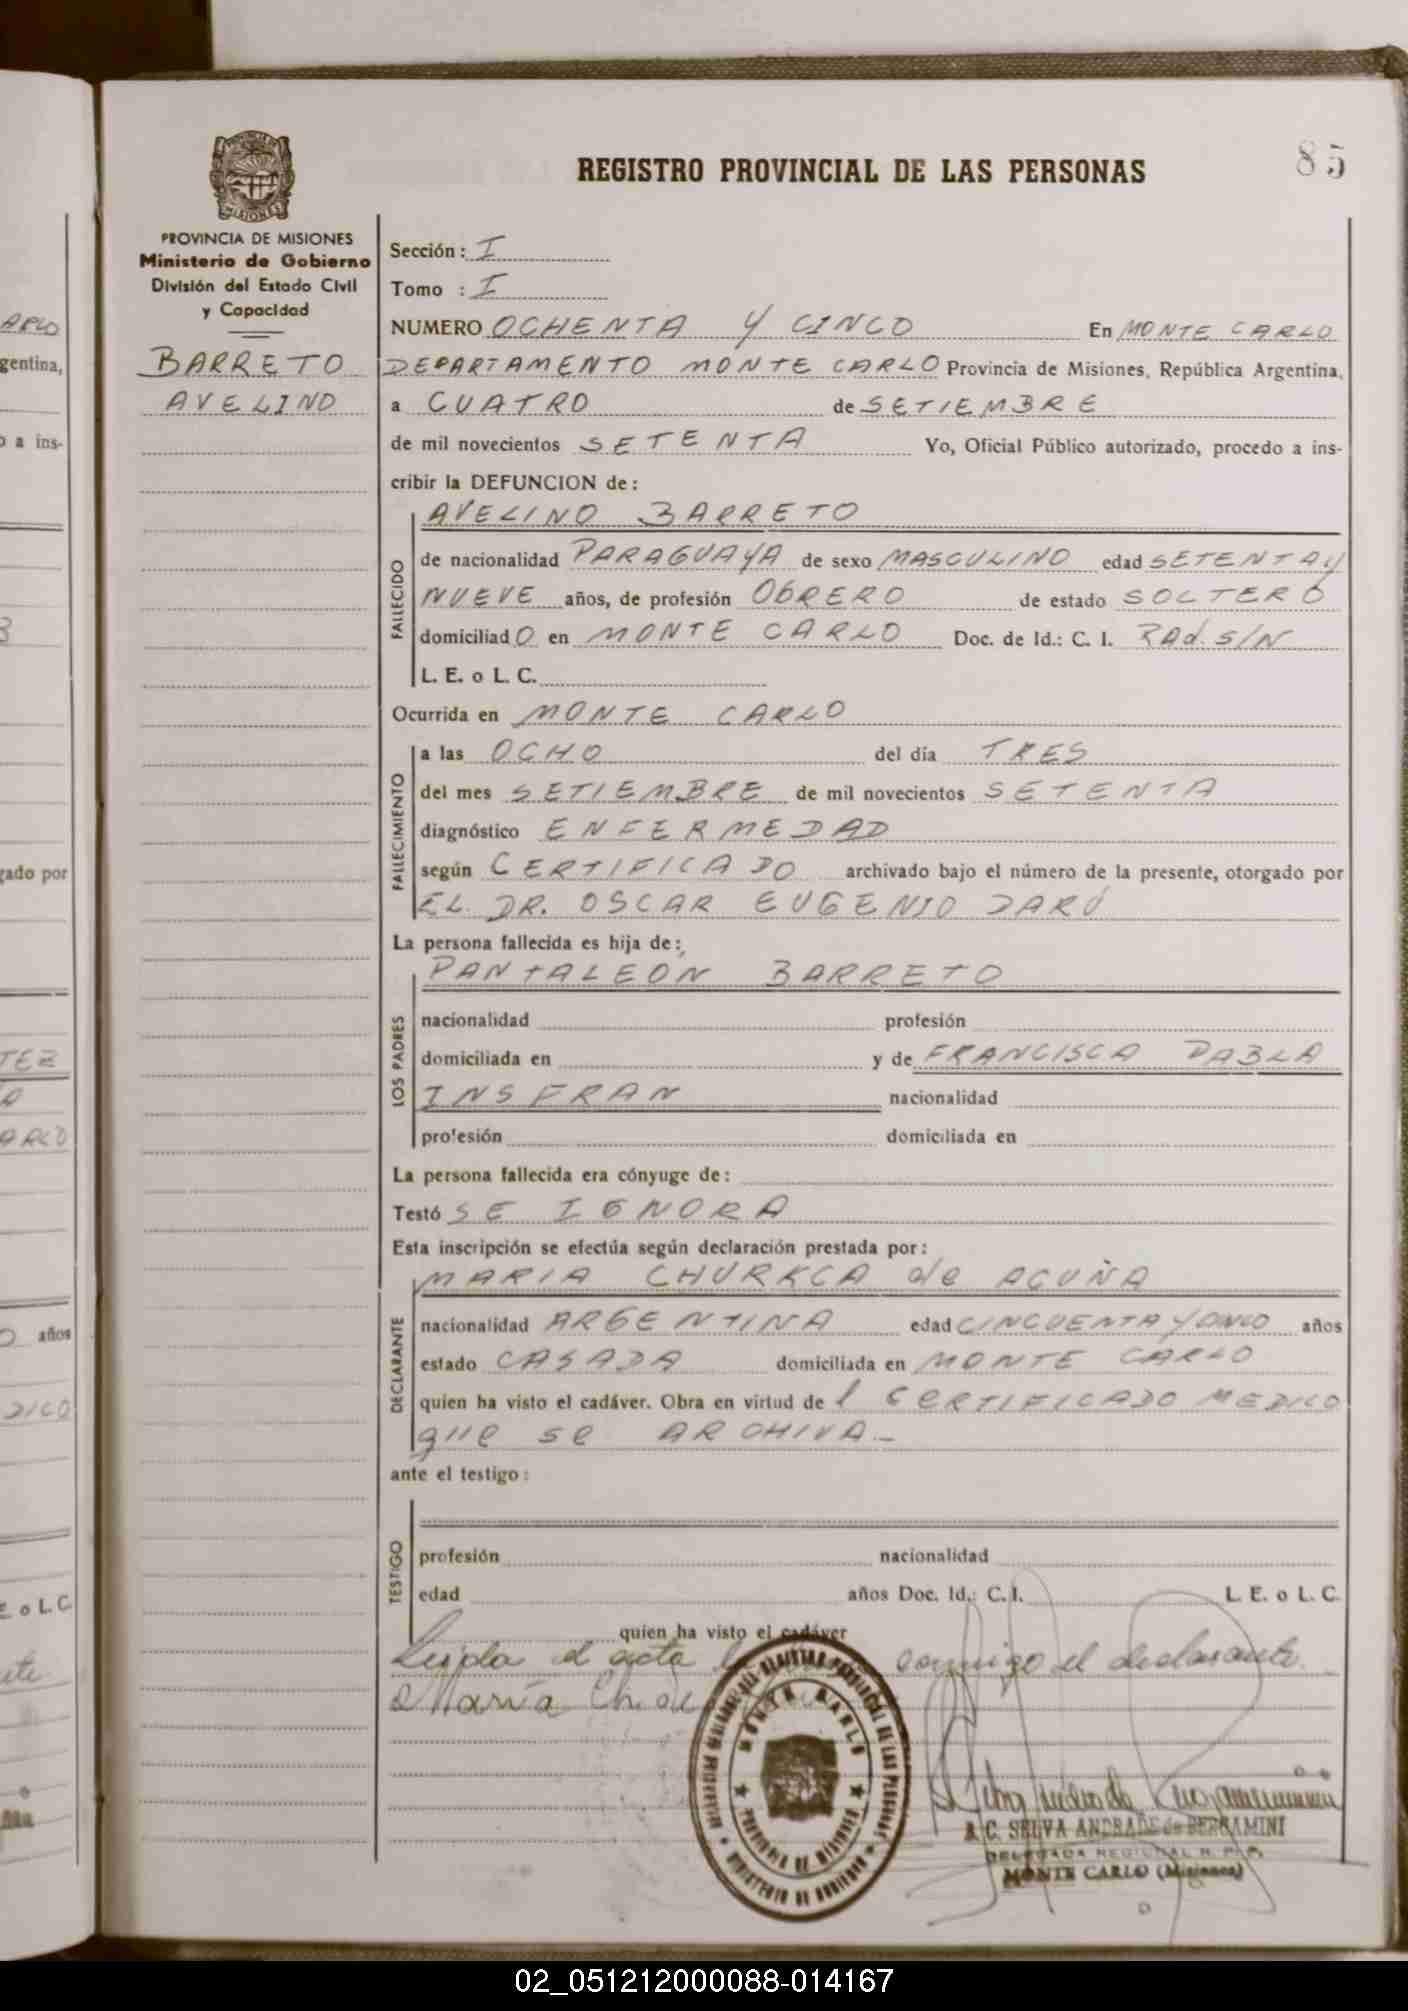 85
REGISTRO PROVINCIAL DE LAS PERSONAS
PROVINCIA DE MISIONES
Ministerio de Gobierno
División del Estado Civil
y Capacidad
BARRETO
AVELINO
Sección: I
Tomo : I
NUMERO OCHENTA Y CINCO En MONTE CARLO
DEPARTAMENTO MONTE CARLO Provincia de Misiones, República Argentina,
a CUATRO de SETIEMBRE
de mil novecientos SETENTA Yo, Oficial Público autorizado, procedo a ins-
cribir la DEFUNCION de:
AVELINO BARRETO
FALLECIDO
de nacionalidad PARAGUAYA de sexo MASCULINO edad SETENTA Y
NUEVE años, de profesión OBRERO de estado SOLTERO
domiciliado en MONTE CARLO Doc. de Id.: C. I. RAd. S/N
L. E. o L. C.
Ocurrida en MONTE CARLO
FALLECIMIENTO
a las OCHO del día TRES
del mes SETIEMBRE de mil novecientos SETENTA
diagnóstico ENFERMEDAD
según CERTIFICADO archivado bajo el número de la presente, otorgado por
EL DR. OSCAR EUGENIO DARÚ
La persona fallecida es hija de:
PANTALEÓN BARRETO
LOS PADRES
nacionalidad profesión
domiciliada en y de FRANCISCA PABLA
INSFRAN nacionalidad
profesión domiciliada en
La persona fallecida era cónyuge de:
Testó SE IGNORA
Esta inscripción se efectúa según declaración prestada por:
MARIA CHURKCA de ACUÑA
DECLARANTE
nacionalidad ARGENTINA edad CINCUENTA Y ONCO años
estado CASADA domiciliada en MONTE CARLO
quien ha visto el cadáver. Obra en virtud de l CERTIFICADO MEDICO
que se ARCHIVA.-
ante el testigo:
TESTIGO
profesión nacionalidad
edad años Doc. Id.: C. I. L. E. o L. C.
quien ha visto el cadáver
Leída el acta conmigo el declarante.
María Ch. de
MONTE CARLO
PROVINCIA DE MISIONES
MINISTERIO DE GOBIERNO
REGISTRO PROVINCIAL DE LAS PERSONAS
C. SELVA ANDRADE de BERGAMINI
DELEGADA REGIONAL R. P. P.
MONTE CARLO (Misiones)
02_051212000088-014167